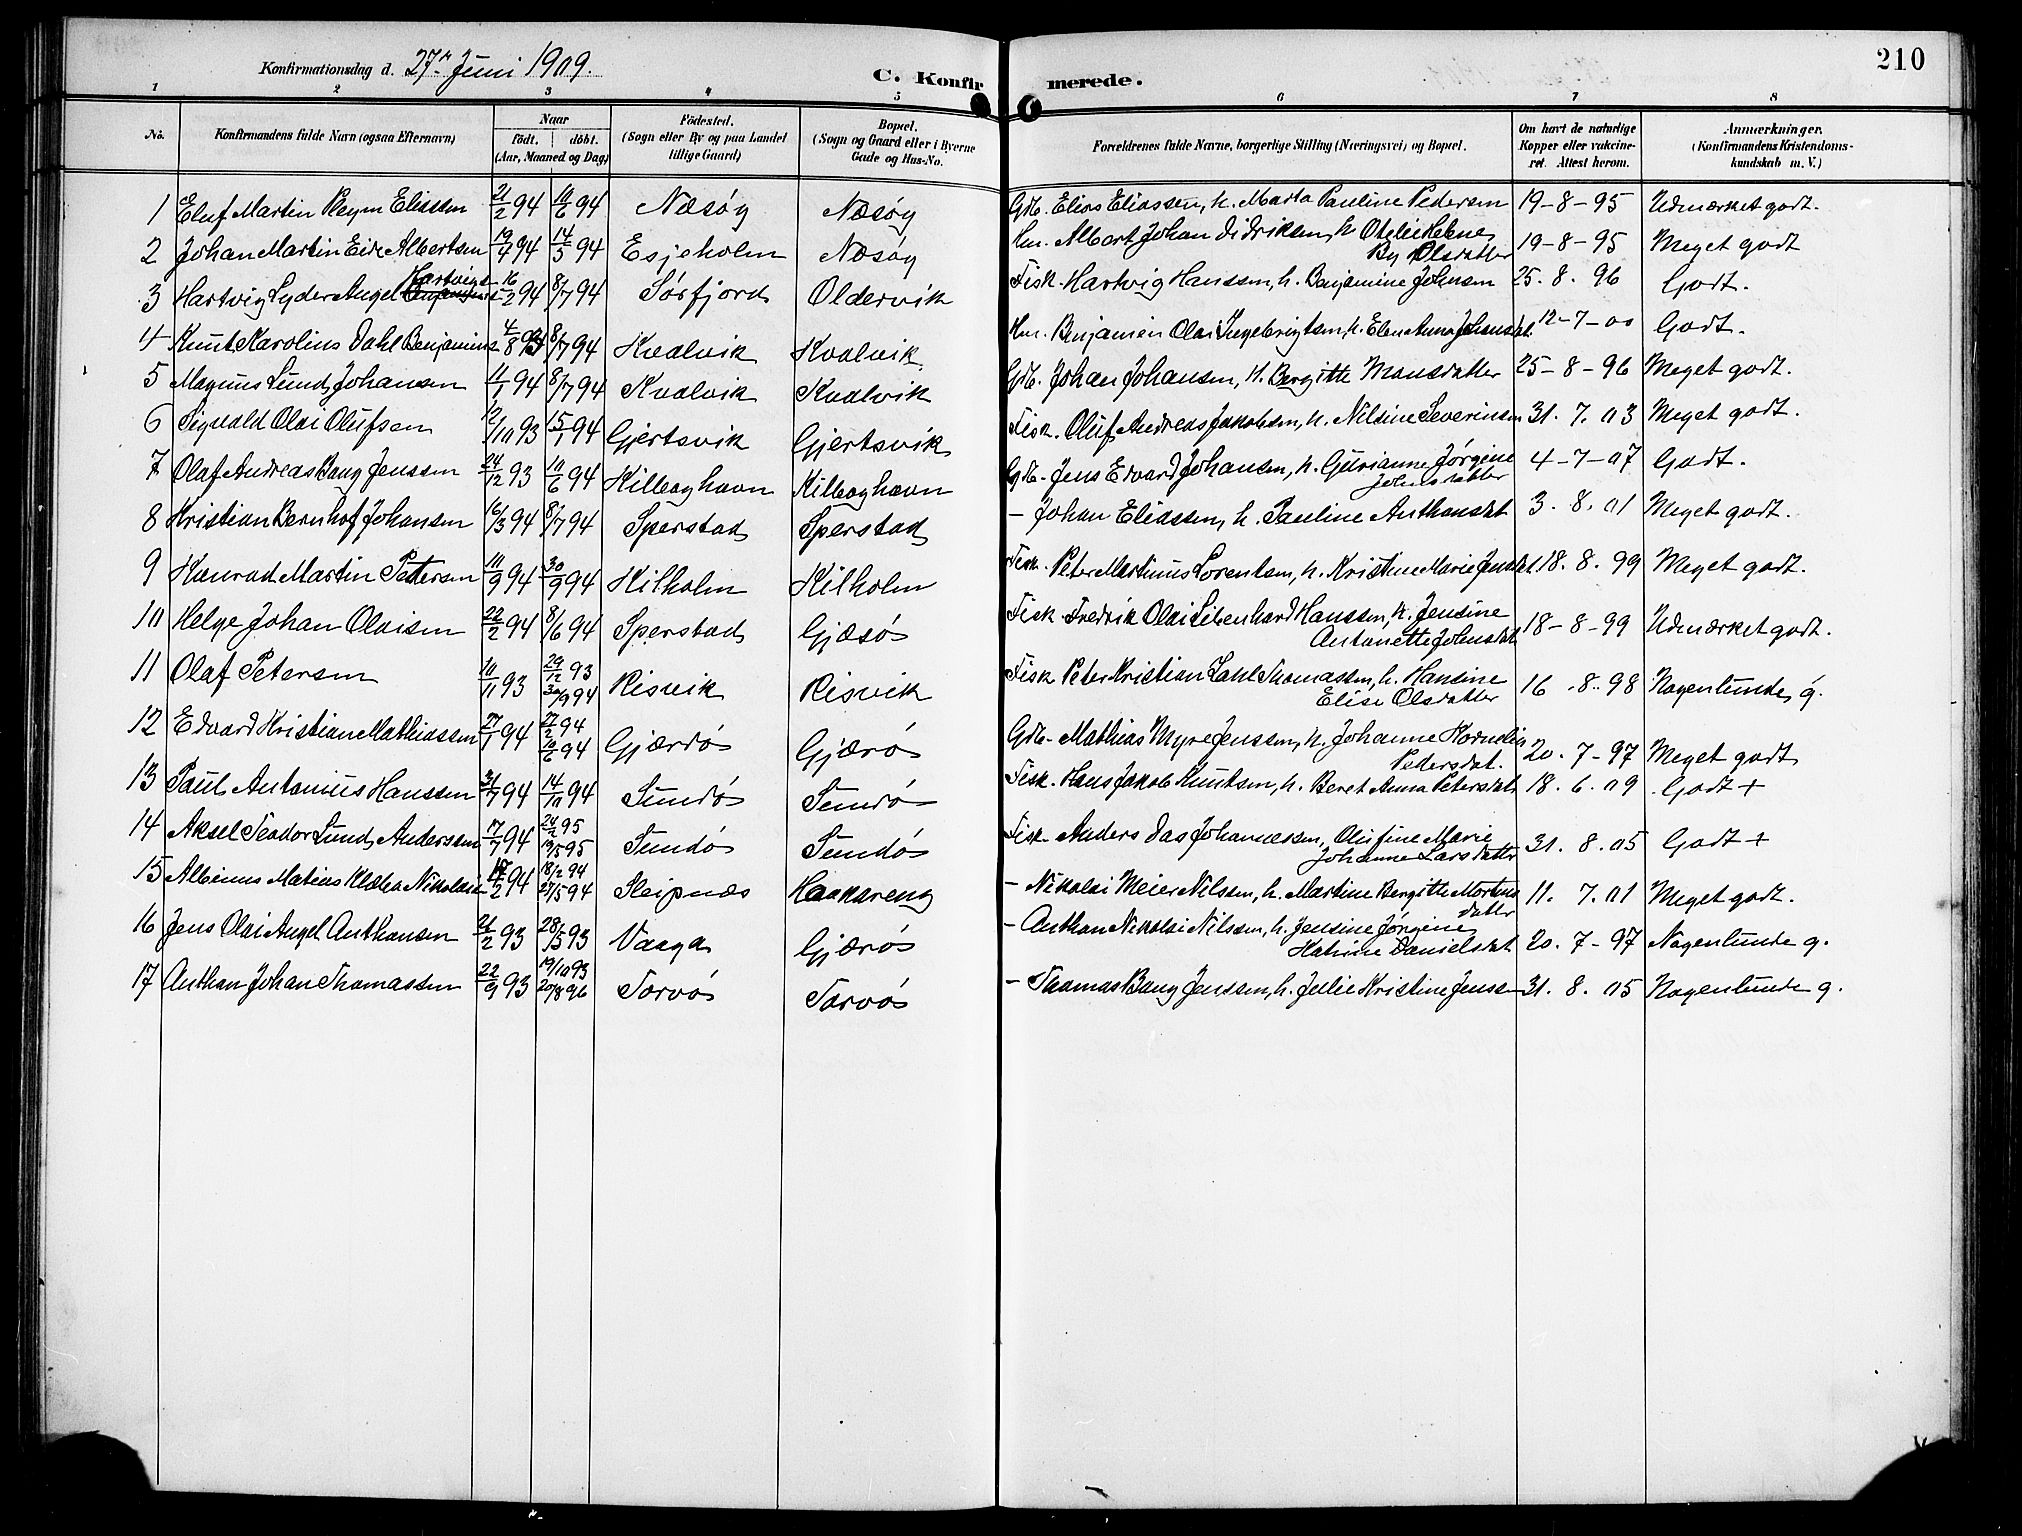 Konfirmationsdag d. 27de Juni 1909.
C. Konfirmerede.
210
1 2 3 4 5 6 7 8
No. Konfirmandens fulde Navn (ogsaa Efternavn) Naar födt. döbt. (Aar, Maaned og Dag) Födested. (Sogn eller By og paa Landet tillige Gaard) Bopæl. (Sogn og Gaard eller i Byerne Gade og Hus-No. Forældrenes fulde Navne, borgerlige Stilling (Næringsvei) og Bopæl. Om havt de naturlige Kopper eller vakcineret. Attest herom. Anmærkninger. (Konfirmandens Kristendomskundskab m. V.)
1 Eluf Martin Eliassen 21/2 94 10/6 94 Næsøy Næsøy Gdb. Elias Eliassen, h. Marta Pauline Pedersen 19-8-95 Udmærket godt.
2 Johan Martin Albertsen 19/4 94 14/5 94 Esjeholm Næsøy Hm. Albert Johan Didriksen, h. Otelie Helene
By Olsdatter 19-8-95 Meget godt
3 Hartvig Lyder Angel Hartvigs. 16/2 94 8/7 94 Sørfjord Oldervik Fisk. Hartvig Hanssen, h. Benjamine Johnsen 25. 8. 96 Godt.
4 Knut Karolius Dahl Benjamins. 4/8 93 8/7 94 Kvalvik Kvalvik. Hm. Benjamin Olai Ingebrigtsen, h. Elen Anna Johansdt. 12-7-00 Godt.
5 Magnus Lund Johansen 11/1 94 8/7 94 Kvalvik Kvalvik Gdb. Johan Johansen, h. Bergitte Monsdatter 25-8-96 Meget godt.
6 Sigvald Olai Olufsen 12/10 93 15/1 94 Gjertsvik Gjertsvik Fisk. Oluf Andreas Jakobsen, h. Nilsine Severinsen 31. 7. 03 Meget godt.
7 Olaf Andreas Bang Jenssen 24/12 93 10/6 94 Kilboghavn Kilboghavn Gdb. Jens Edvard Johansen, h. Gurianne Jørgine
Johnsdatter 4-7-07 Godt.
8 Kristian Bernhof Johansen 16/3 94 8/7 94 Sperstad Sperstad - Johan Eliassen, h. Pauline Anthonsdt 3. 8. 01 Meget godt.
9 Konrad Martin Petersen 10/9 94 30/9 94 Kilholm Kilholm Fisk. Peter Martinus Lorentsen, h. Kristine Marie Jensdt. 18. 8. 99 Meget godt.
10 Helge Johan Olaisen 22/2 94 8/6 94 Sperstad Gjæsø Fisk. Fredrik Olai Hanssen, h. Jensine
Antonette Johnsdat 18-8-99 Udmærket godt.
11 Olaf Petersen 10/11 93 29/12 93
30/9 94 Risvik Risvik Fisk Peter Kristian Dahl Thomassen, h. Hansine
Elise Olsdatter 16. 8. 98 Nogenlunde g.
12 Edvard Kristian Mathiassen 27/1 94 27/2 94
10/6 94 Gjærdø Gjærø Gdb. Mathias Myre Jenssen, h. Johanne Kornelia
Pedersdat. 20. 7-97 Meget godt
13 Paul Antonius Hanssen 31/7 94 14/10 94 Sundø Sundø Fisk. Hans Jakob Knutsen, h. Beret Anna Petersdt. 18. 6. 09 Godt +
14 Aksel Teodor Lund Anderssen 17/7 94 24/2 95
19/5 95 Sundø Sundø Fisk. Anders Das Johannessen, Olufine Marie
Johanne Larsdatter 31. 8. 05 Godt +
15 Albinus Matias Nikolais. 17/2 94 18/2 94
27/5 94 Sleipnæs Haakareng - Nikolai Meier Nilssen, h. Martine Bergitte Mortens
datter 11. 7. 01 Meget godt.
16 Jens Olai Angel Anthonsen 21/2 93 28/5 93 Vaaga Gjærø - Anthon Nikolai Nilssen, h. Jensine Jørgine
Katrine Danielsdat 20. 7-97 Nogenlunde g.
17 Anthon Johan Thomassen 22/9 93 19/10 93
20/8 96 Torvø Torvø - Thomas Bang Jenssen, h. Julie Kristine Jenssen 31. 8. 05 Nogenlunde g.